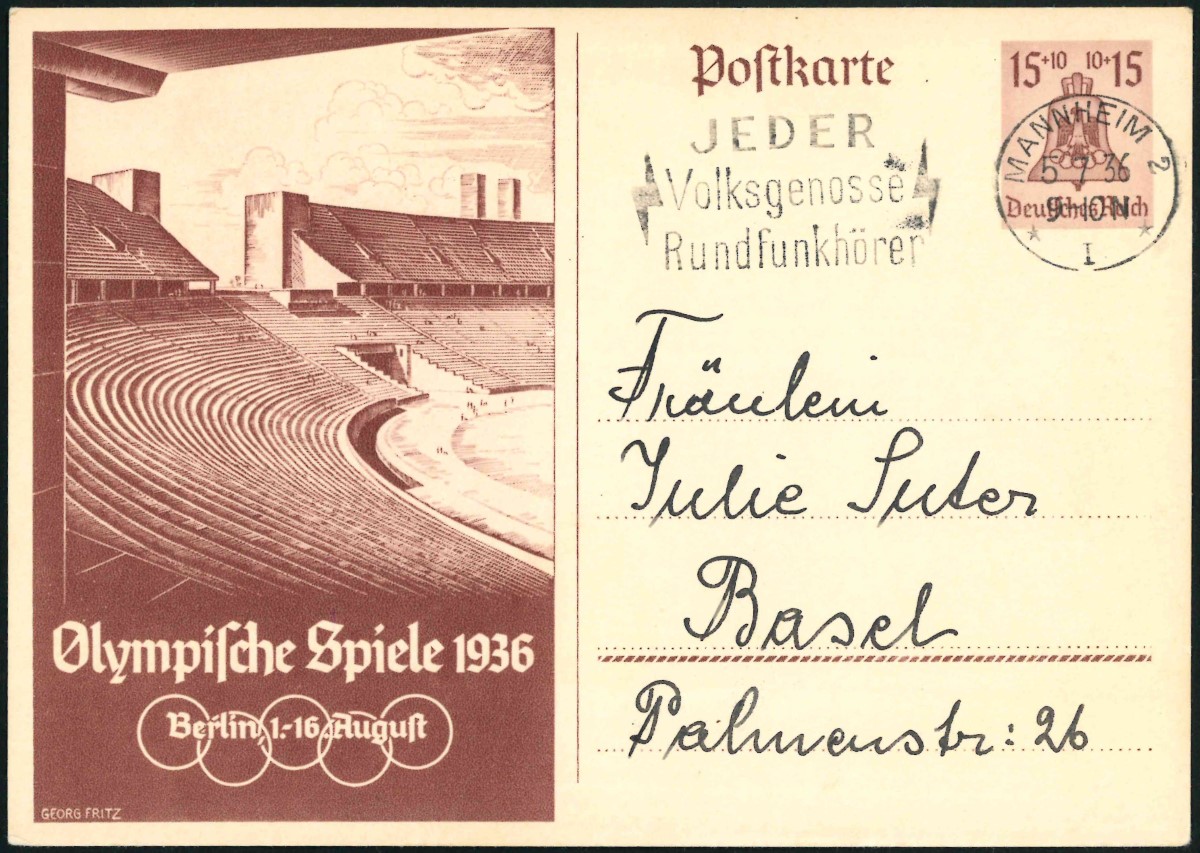 Olympische Spiele 1936
Berlin, 1.-16. August
GEORG FRITZ
Postkarte
15+10 10+15
Deutsches Reich
JEDER
Volksgenosse
Rundfunkhörer
MANNHEIM 2
5 7 36
9-10 N
I
Fräulein
Julie Suter
Basel
Palmenstr: 26